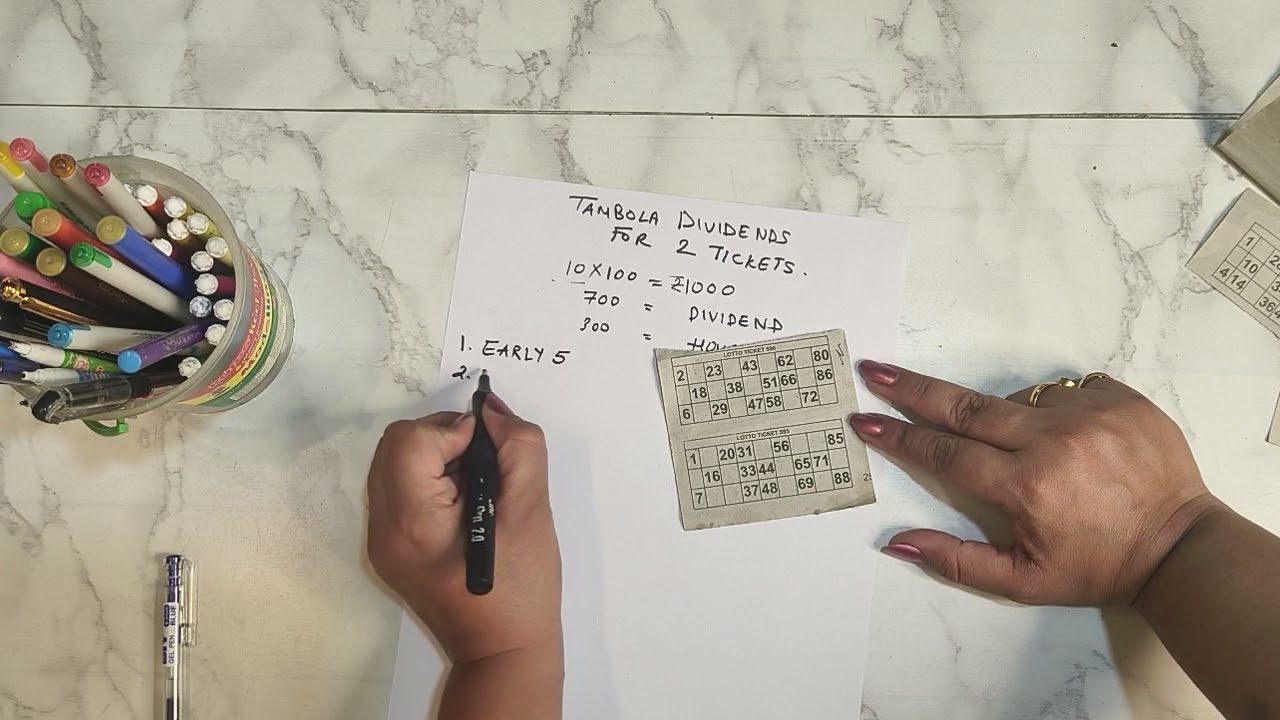 TAMBOLA DIVIDENDS
FOR 2 TICKETS.
10 X 100 = ₹1000
700 = DIVIDEND
300 =
1. EARLY 5
2.
LOTTO TICKET 596
2 23 43 62 80
18 38 51 66 86
6 29 47 58 72
LOTTO TICKET 595
1 20 31 56 85
16 33 44 65 71
7 37 48 69 88
GEL PEN BLUE
1
10
4 14 36